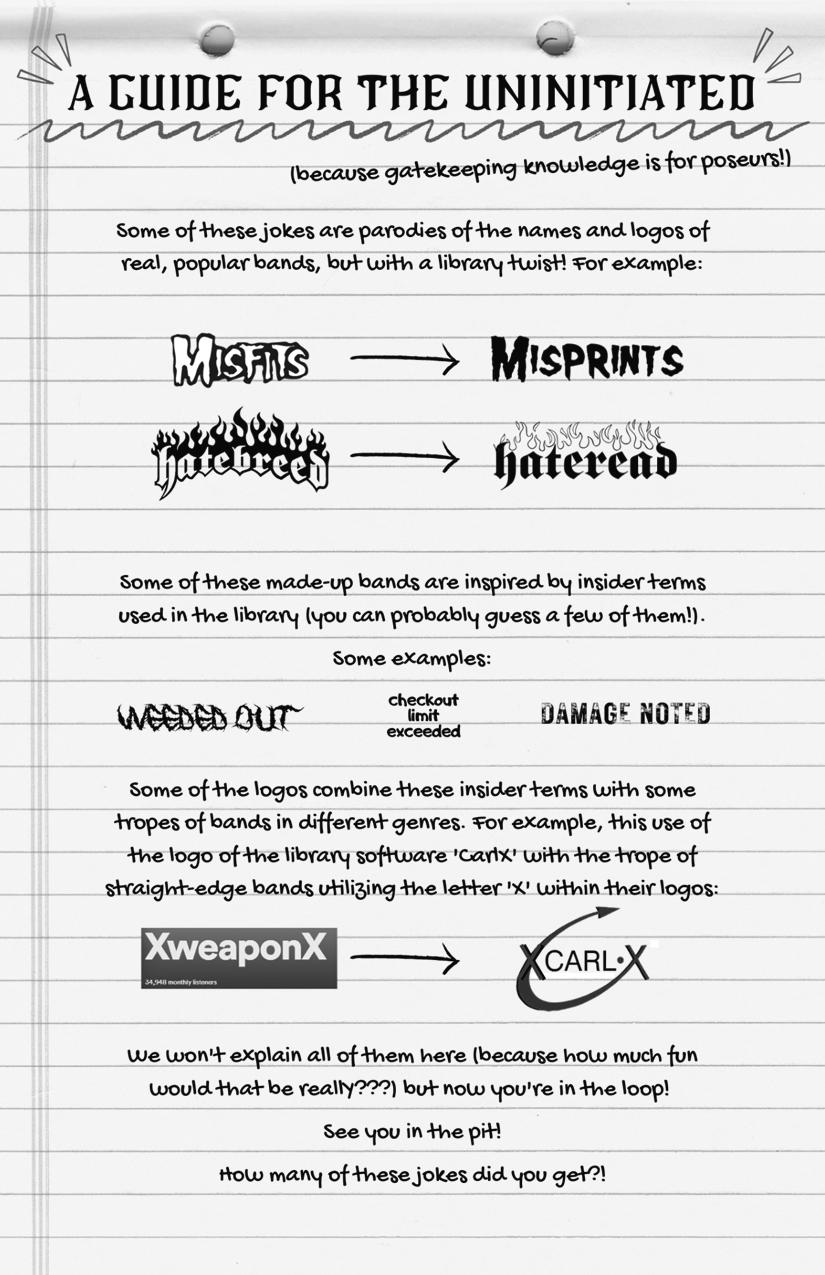 A GUIDE FOR THE UNINITIATED
(because gatekeeping knowledge is for poseurs!)
Some of these jokes are parodies of the names and logos of
real, popular bands, but with a library twist! For example:
MISFITS → MISPRINTS
hatebreed → hateread
Some of these made-up bands are inspired by insider terms
used in the library (you can probably guess a few of them!).
Some examples:
WEEDED OUT
checkout
limit
exceeded
DAMAGE NOTED
Some of the logos combine these insider terms with some
tropes of bands in different genres. For example, this use of
the logo of the library software 'CarlX' with the trope of
straight-edge bands utilizing the letter 'X' within their logos:
XweaponX → XCARL•X
34,948 monthly listeners
We won't explain all of them here (because how much fun
would that be really???) but now you're in the loop!
See you in the pit!
How many of these jokes did you get?!